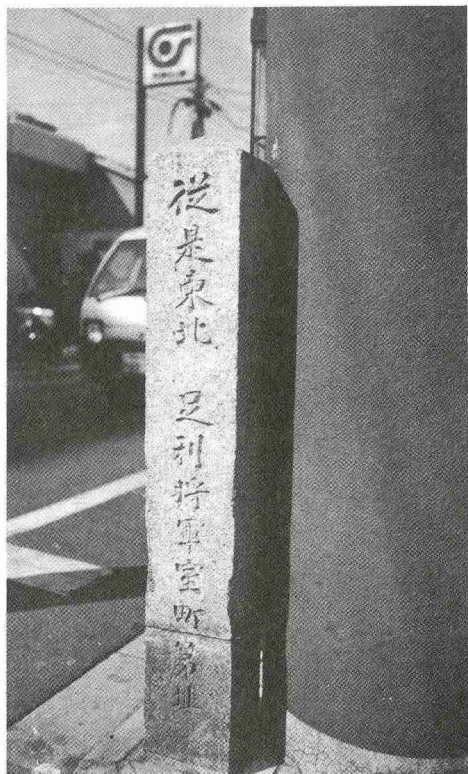 從是東北 足利将軍室町第址